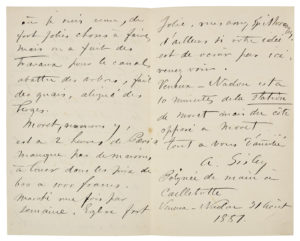 où je suis venu, de
fort jolies choses à faire,
mais on a fait des
travaux pour le canal,
abattu des arbres, fait
des quais, aligné des
berges.
Moret,
est à 2 heures de Paris
manque pas de maisons
à louer dans les prix de
600 à 1000 francs.
Marché une fois par
semaine. Eglise fort
Jolie, vues assez
d'ailleurs si votre idée
est de venir pas ici
venez voir.
Veneux-Nadon est à
10 minutes de la Station
de Moret mais du côté
opposé à Moret.
Tout à vous d'amitié
A. Sisley
Poignée de main à
Caillebotte
Veneux-Nadon 31 Août
1881